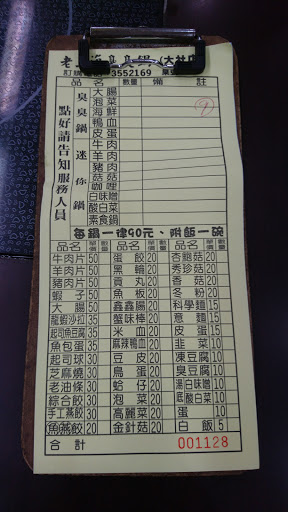 3552169
品名 數量 備註
點好請告知服務人員
臭臭鍋迷你鍋
大腸
泡菜
海鮮
鴨血
皮蛋
牛肉
羊肉
豬肉
菇菇
咖哩
白味噌
酸白菜
素食鍋
每鍋一律90元、附飯一碗
品名 單價 數量 品名 單價 數量 品名 單價 數量
牛肉片 50 蛋餃 20 杏鮑菇 20
羊肉片 50 黑輪 20 秀珍菇 20
豬肉片 50 貢丸 20 香菇 20
蝦子 50 魚板 20 冬粉 20
大腸 50 鑫鑫腸 20 科學麵 15
龍蝦沙拉 35 蟹味棒 20 意麵 15
起司魚豆腐 35 米血 20 皮蛋 15
魚包蛋 35 麻辣鴨血 20 韭菜 10
起司球 30 豆皮 20 凍豆腐 10
芝麻燒 30 鳥蛋 20 臭豆腐 10
老油條 30 蛤仔 20 湯白味噌 10
綜合餃 30 泡菜 20 底酸白菜 10
手工燕餃 30 高麗菜 20 蛋 10
魚燕餃 20 金針菇 20 白飯 5
合計 001128